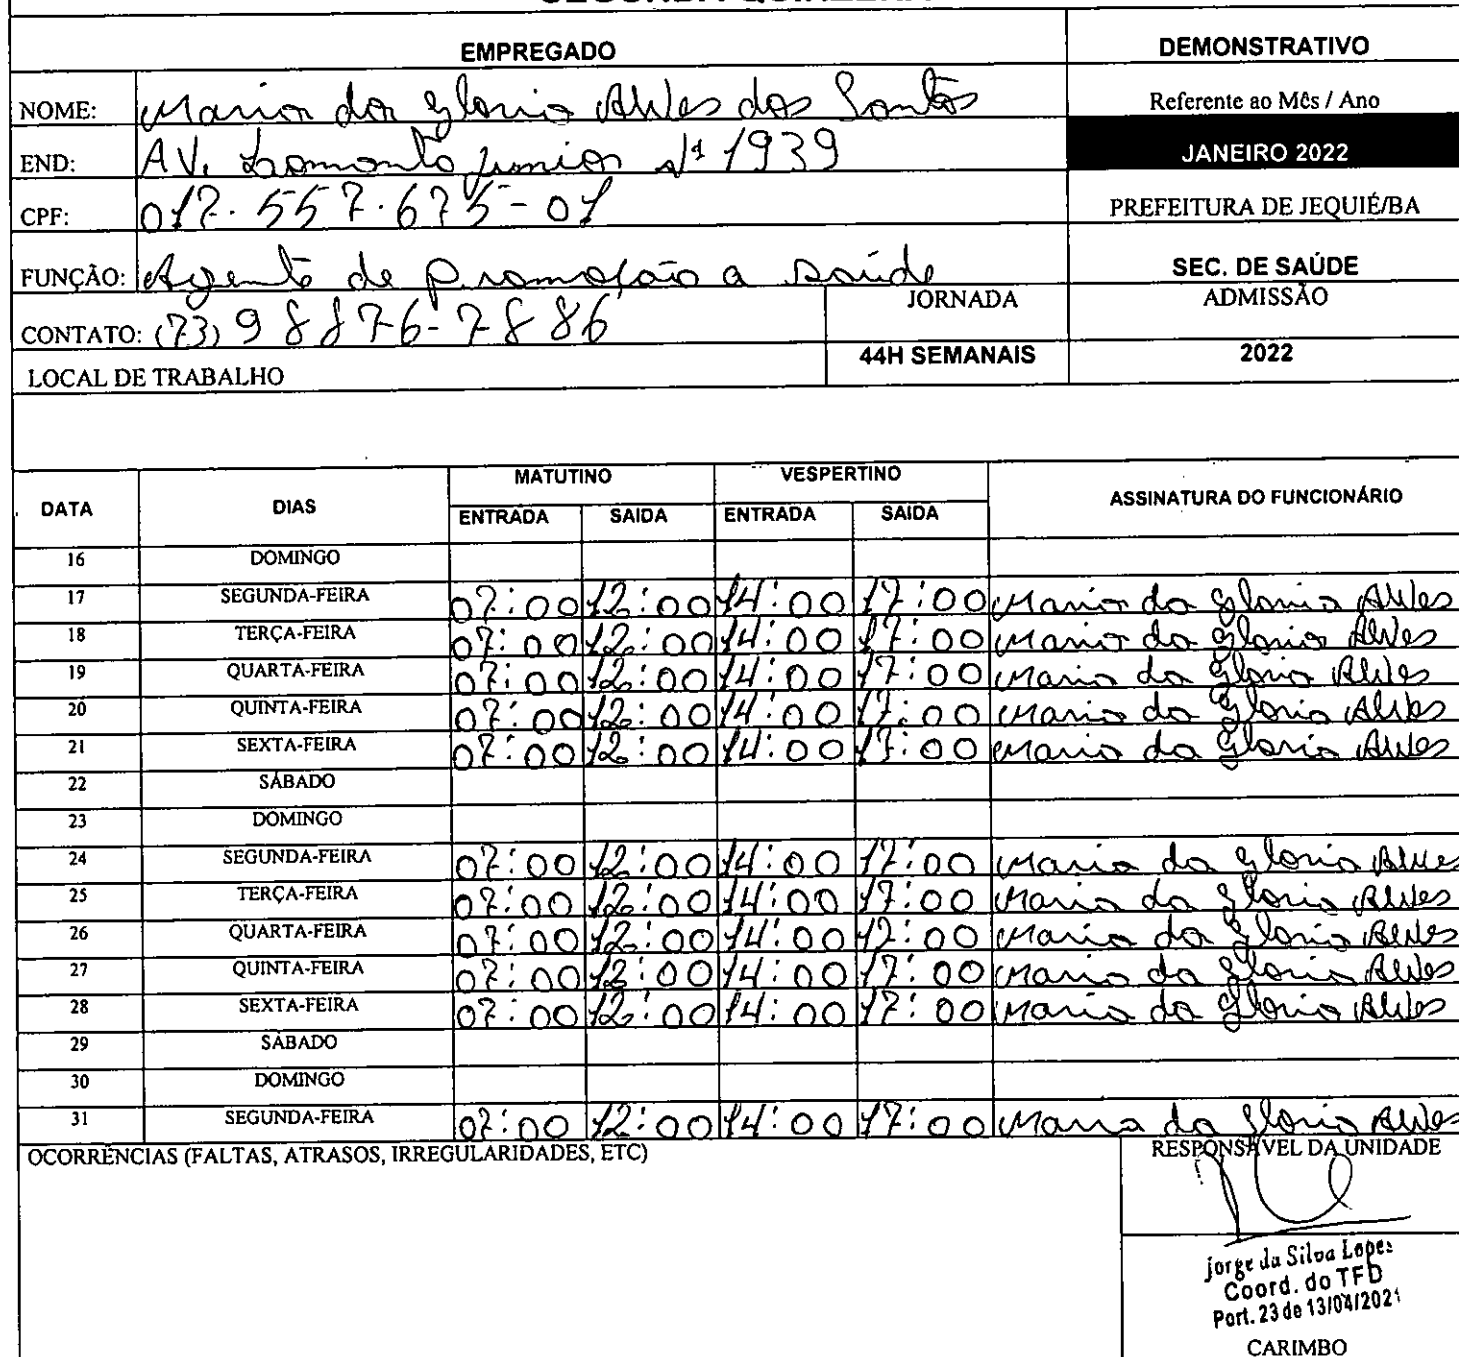 EMPREGADO DEMONSTRATIVO
NOME: Maria da Gloria Alves dos Santos Referente ao Mês / Ano
END: AV. Lomanto junior Nº 1939 JANEIRO 2022
CPF: 017.557.675-01 PREFEITURA DE JEQUIÉ/BA
FUNÇÃO: Agente de promoção a saúde SEC. DE SAÚDE
JORNADA ADMISSÃO
CONTATO: (73) 98876-7886
44H SEMANAIS 2022
LOCAL DE TRABALHO
MATUTINO VESPERTINO
DATA DIAS ASSINATURA DO FUNCIONÁRIO
ENTRADA SAIDA ENTRADA SAIDA
16 DOMINGO
17 SEGUNDA-FEIRA 07:00 12:00 14:00 17:00 Maria da Gloria Alves
18 TERÇA-FEIRA 07:00 12:00 14:00 17:00 Maria da Gloria Alves
19 QUARTA-FEIRA 07:00 12:00 14:00 17:00 Maria da Gloria Alves
20 QUINTA-FEIRA 07:00 12:00 14:00 17:00 Maria da Gloria Alves
21 SEXTA-FEIRA 07:00 12:00 14:00 17:00 Maria da Gloria Alves
22 SÁBADO
23 DOMINGO
24 SEGUNDA-FEIRA 07:00 12:00 14:00 17:00 Maria da Gloria Alves
25 TERÇA-FEIRA 07:00 12:00 14:00 17:00 Maria da Gloria Alves
26 QUARTA-FEIRA 07:00 12:00 14:00 17:00 Maria da Gloria Alves
27 QUINTA-FEIRA 07:00 12:00 14:00 17:00 Maria da Gloria Alves
28 SEXTA-FEIRA 07:00 12:00 14:00 17:00 Maria da Gloria Alves
29 SÁBADO
30 DOMINGO
31 SEGUNDA-FEIRA 07:00 12:00 14:00 17:00 Maria da Gloria Alves
OCORRÊNCIAS (FALTAS, ATRASOS, IRREGULARIDADES, ETC) RESPONSÁVEL DA UNIDADE
Jorge da Silva Lopes
Coord. do TFD
Port. 23 de 13/04/2021
CARIMBO